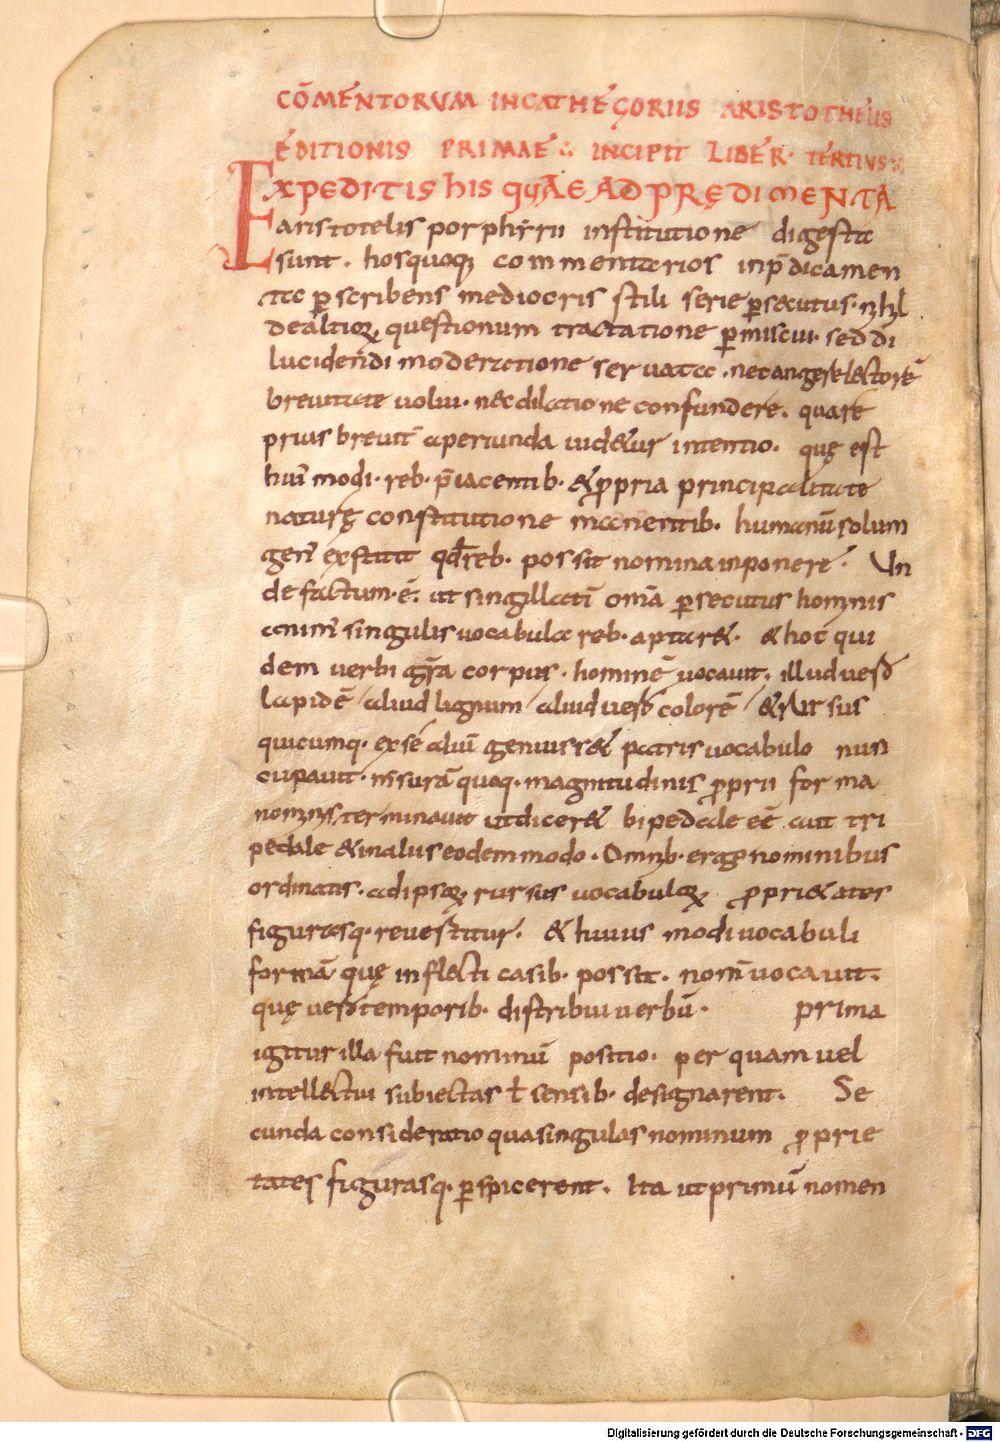 COM̄ENTORVM IN CATHEGORIIS ARISTOTHELIS
EDITIONIS PRIMAE ∴ INCIPIT LIBER · TERTIVS ∴
EXPEDITIS HIS QUAE AD PRĘDIMENTA
aristotelis porphyrii institutione digesta
sunt . hosquoq; commentarios inp̄dicamen
ta ꝑscribens mediocris stili serie ꝑsecutus ·
de altioꝝ questionum tractatione ꝑmiscui · sed di
lucidendi moderatione servata . nec angerē lectorē
brevitate volui · nec dilatione confundere . quare
prius brevit̄ aperiunda videtur intentio · quę est
hui᾽ modi · reb · p̄iacentib · & ꝓpria principalitate
naturę constitutione manentib · humanū solum
gen᾽ exstitit qd̄ reb · possit nomina inponere · Un
de factum · ē . ut singillatī om̄a ꝑsecutus hominis
anim᾽ singulis vocabula reb · aptar& · & hoc qui
dem verbi gr̄a corpus · hominē vocavit . illud vero
lapidē / aliud lignum / aliud vero colorē / & rursus
quicumq · ex se aliū genuiss& patris vocabulo nun
cupavit · m̄surā quoq · magnitudinis ꝓprii forma
nominis terminavit ut dicer& bipedale eē aut tri
pedale & in alus eodem modo · Omnib · ergo nominibus
ordinatis · ad ipsoꝝ rursus vocabuloꝝ ꝓpri&ates
figurasq · revertitur · & huius modi vocabuli
formā · quę inflecti casib · possit · nom̄ vocavit .
quę vero temporib · distribui verbū · prima
igitur illa fuit nominū positio · per quam vel
intellectui subiectas ł sensib · designarent . Se
cunda consideratio qua singulas nominum ꝓprie
tates figurasq · ꝑspicerent . Ita ut primū nomen
Digitalisierung gefördert durch die Deutsche Forschungsgemeinschaft - DFG